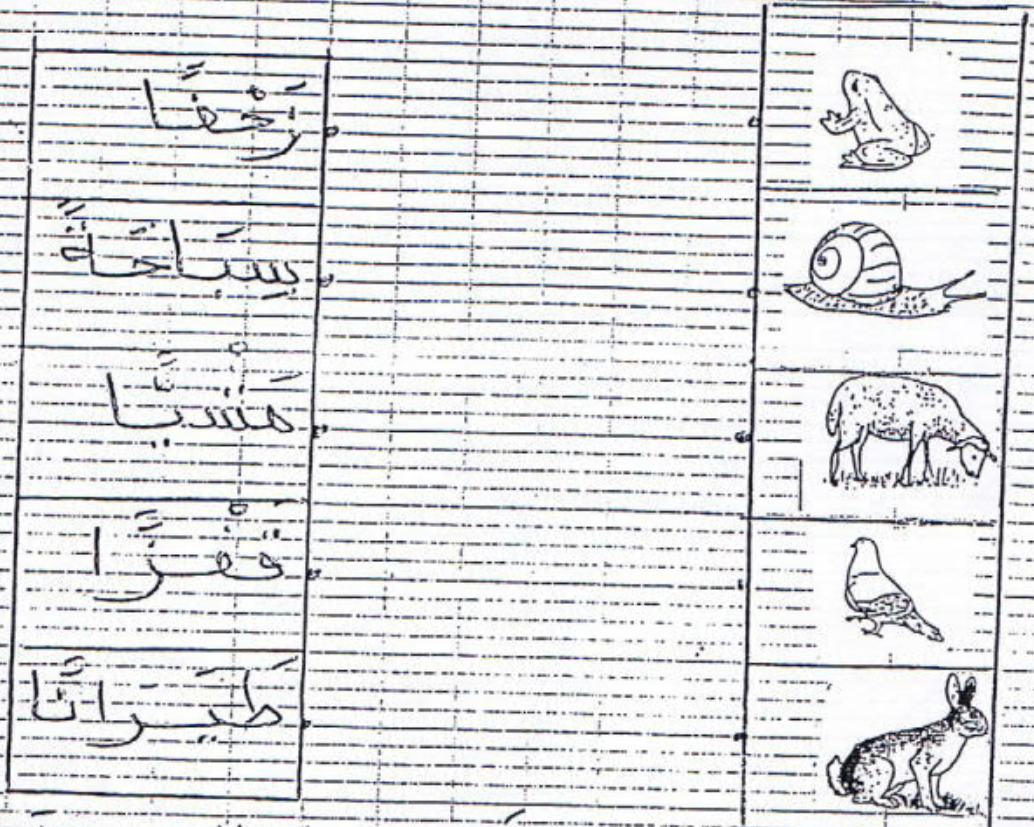 زَحْفًا
سِبَاحَةً
مَشْيًا
قَفْزًا
طَيَرَانًا